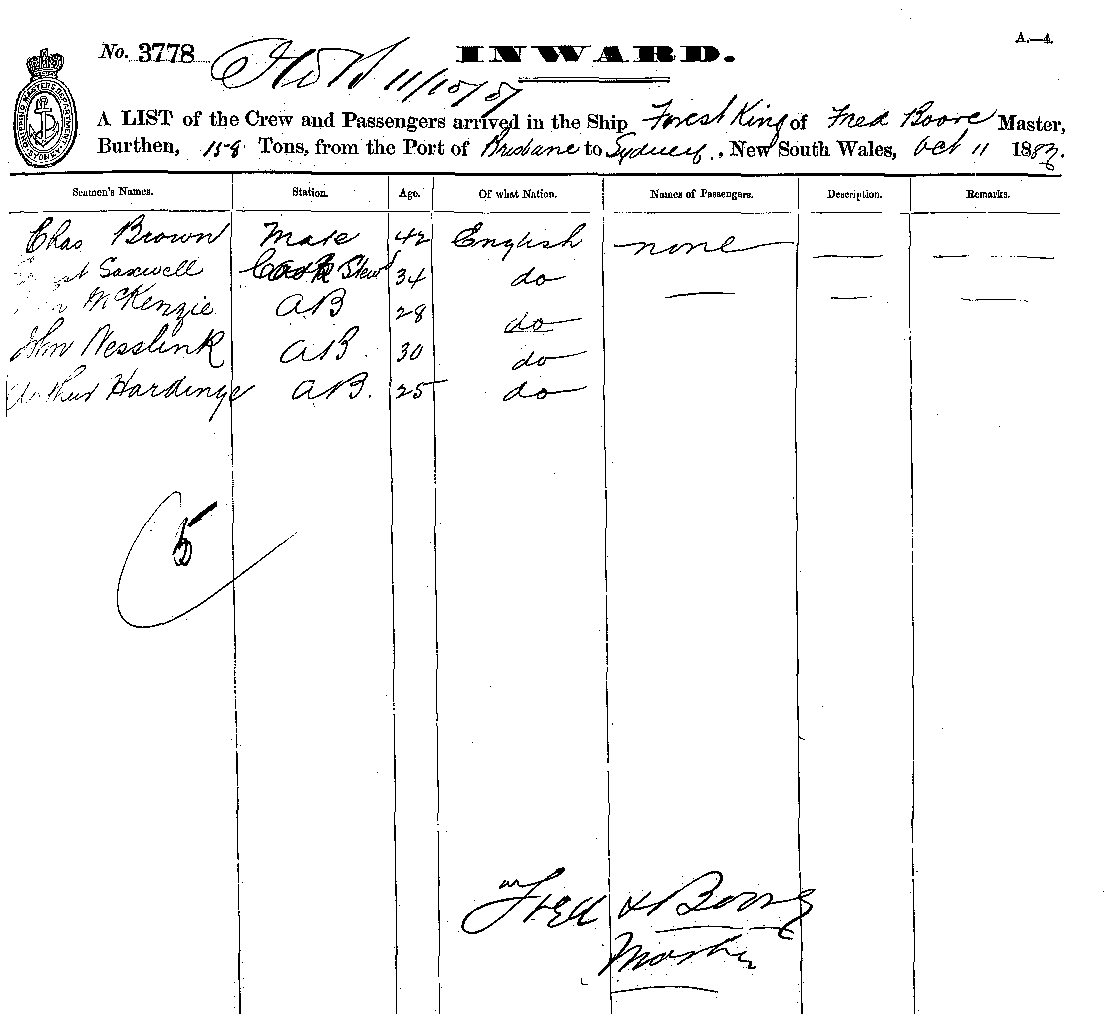 No. 3778 INWARD. A.—4.
11/10/87
A LIST of the Crew and Passengers arrived in the Ship Forest King of Fred Boore Master,
Burthen, 158 Tons, from the Port of Brisbane to Sydney, New South Wales, Oct 11 188
Seamen's Names. Station. Age. Of what Nation. Names of Passengers. Description. Remarks.
Chas Brown Mate 42 English none
Saxwell Cook Stewd 34 do
McKenzie AB 28 do
John Nesslink AB 30 do
Arthur Hardinge AB. 25 do
5
Fred Boore
Master